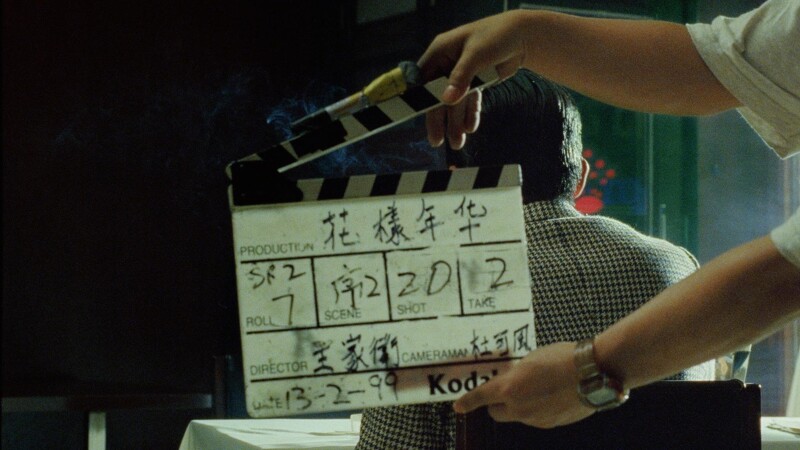 PRODUCTION 花樣年华
SR2
ROLL 7 SCENE 序2 SHOT 20 TAKE 2
DIRECTOR 王家衛 CAMERAMAN 杜可風
DATE 13-2-99 Kodak